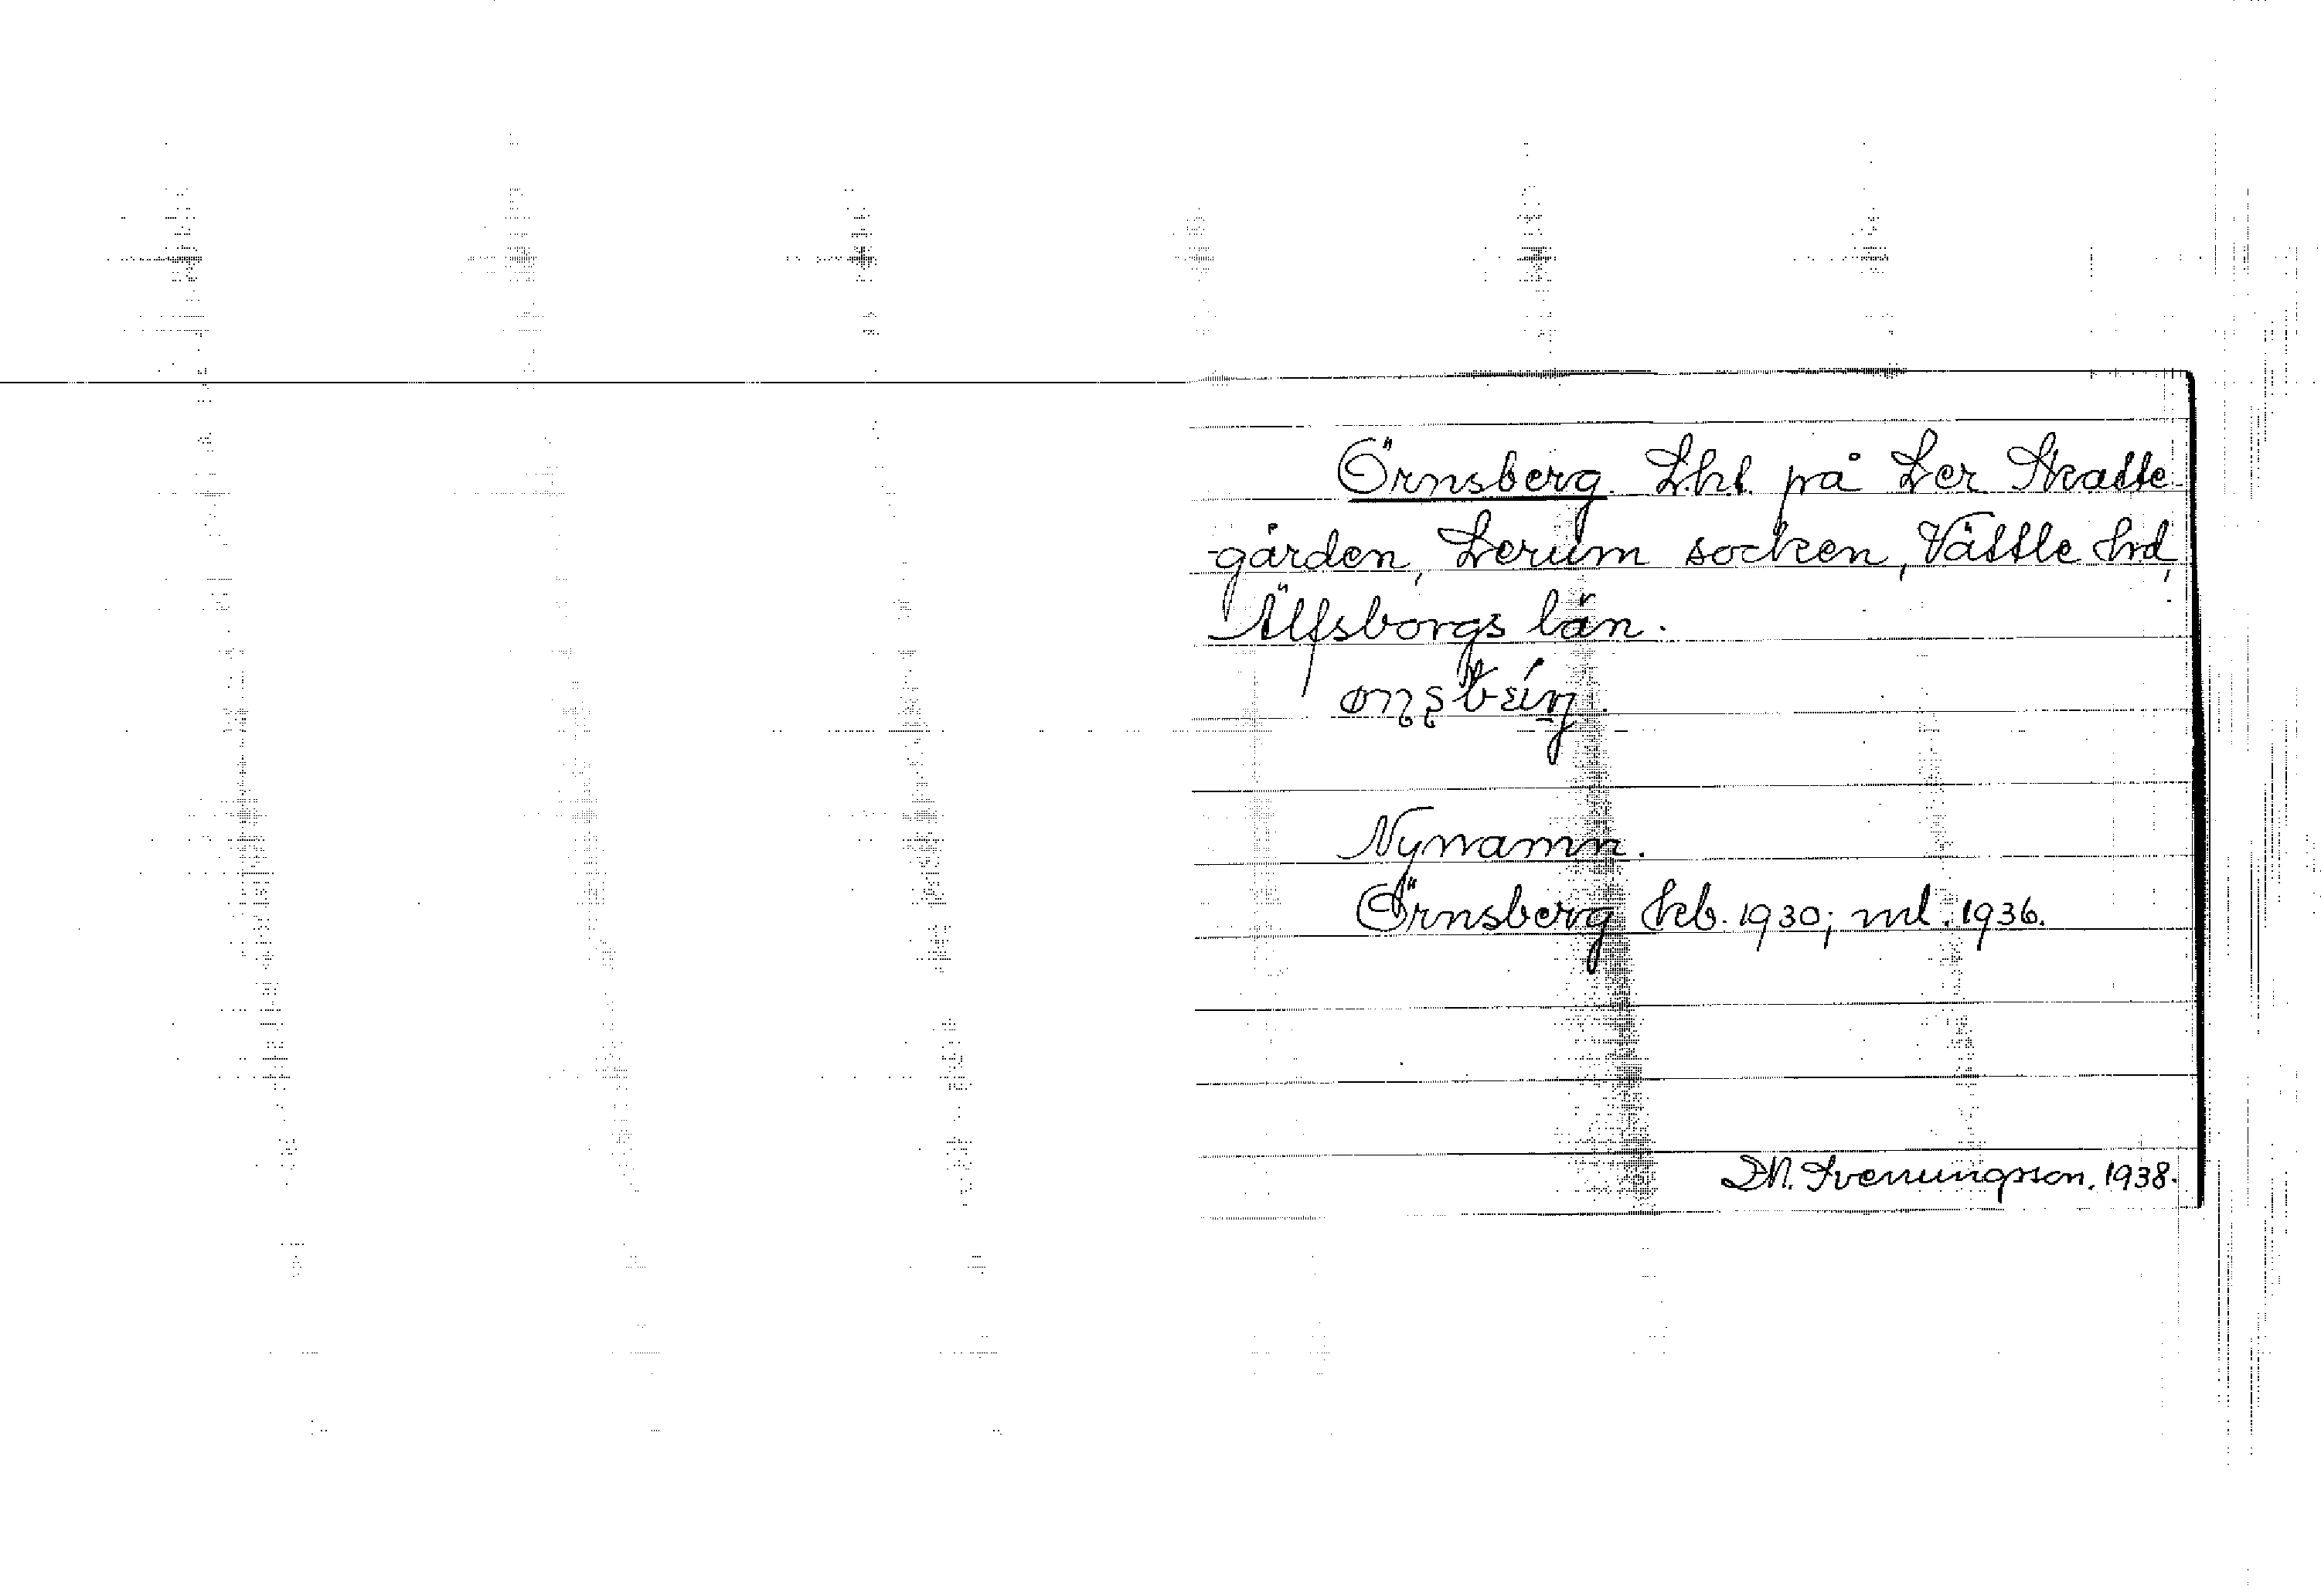 Örnsberg. Lht. på Ler Skatte-
gården, Lerum socken, Vättle hrd,
Älfsborgs län.
Nynamn.
Örnsberg hfb. 1930; ml. 1936.
D.N. Svenungsson. 1938.